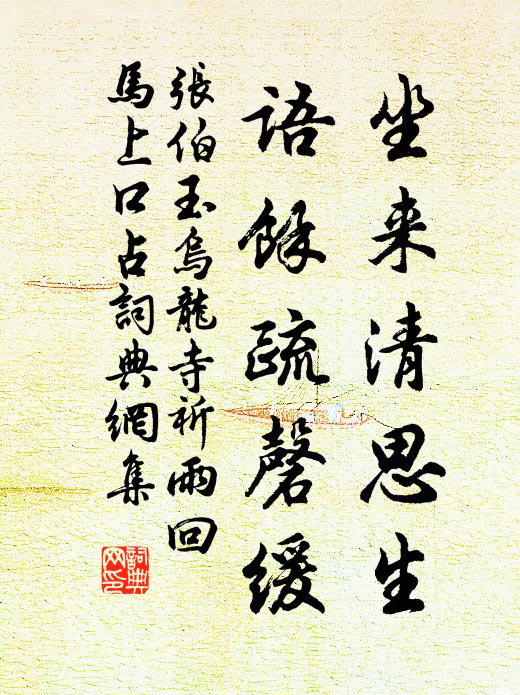 坐来清思生
語餘疏磬缓
張伯玉烏龍寺祈雨回
馬上口占詞典網集
詞典网印